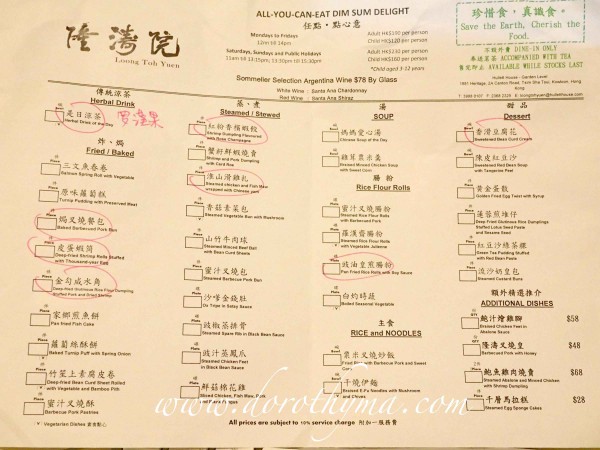 隆濤院
Loong Toh Yuen
ALL-YOU-CAN-EAT DIM SUM DELIGHT
任點‧點心意
Mondays to Fridays
12nn till 14pm
Adult HK$190 per person
Child HK$120 per person
Saturdays, Sundays and Public Holidays
11am till 13:15pm, 13:30pm to 15:30pm
Adult HK$230 per person
Child HK$160 per person
*Child aged 3-12 years
珍惜食，真識食。
Save the Earth, Cherish the Food.
不設外賣 DINE-IN ONLY
奉送茗茶 ACCOMPANIED WITH TEA
售完即止 AVAILABLE WHILE STOCKS LAST
Hullett House - Garden Level
Sommelier Selection Argentina Wine $78 By Glass
White Wine : Santa Ana Chardonnay
Red Wine : Santa Ana Shiraz
傳統涼茶
Herbal Drink
是日涼茶
Herbal Drink of the Day
炸、焗
Fried / Baked
三文魚春卷
Salmon Spring Roll with Vegetable
原味蘿蔔糕
Turnip Pudding with Preserved Meat
焗叉燒餐包
Baked Barbecued Pork Bun
皮蛋蝦筒
Deep-fried Shrimp Rolls Stuffed
with Thousand-year Egg
金勾咸水角
Deep-fried Glutinous Rice Flour Dumpling
Stuffed Pork and Dried Shrimp
家鄉煎魚餅
Pan fried Fish Cake
蘿蔔絲酥餅
Baked Turnip Puff with Spring Onion
竹笙上素腐皮卷
Deep-fried Bean Curd Sheet Rolled
with Vegetable and Bamboo Pith
蜜汁叉燒酥
Barbecue Pork Pastries
* Vegetarian Dishes 素食點心
蒸、煮
Steamed / Stewed
紅粉香檳蝦餃
Shrimp Dumpling Flavoured
with Rose Champagne
蟹籽鮮蝦燒賣
Shrimp and Pork Dumpling
with Crab Roe
淮山滑雞札
Steamed chicken and Fish Maw
wrapped with Chinese yam
香菇素菜包
Steamed Vegetable Bun with Mushroom
山竹牛肉球
Steamed Minced Beef Ball
with Bean Curd Sheets
蜜汁叉燒包
Barbecue Pork Bun
沙嗲金錢肚
Ox Tripe in Satay Sauce
豉椒蒸排骨
Steamed Spare Ribs in Black Bean Sauce
豉汁蒸鳳爪
Steamed Chicken Feet
in Black Bean Sauce
鮮菇棉花雞
Sliced Chicken, Fish Maw, Pork
and Fresh Fungus
湯
SOUP
媽媽愛心湯
Chinese Soup of the Day
雞茸粟米羹
Steamed Minced Chicken Soup
with Sweet Corn
腸粉
Rice Flour Rolls
蜜汁叉燒腸粉
Steamed Rice Flour Rolls
with Barbecued Pork
羅漢齋腸粉
Steamed Rice Flour Rolls
with Vegetable Julienne
豉油皇煎腸粉
Pan Fried Rice Rolls with Soy Sauce
白灼時蔬
Boiled Seasonal Vegetable
主食
RICE and NOODLES
粟米叉燒炒飯
Fried Rice with Barbecue Pork and Sweet
Corn
干燒伊麵
Braised E-Fu Noodles with Mushroom
and Chives
甜品
Dessert
香滑豆腐花
Sweetened Bean Curd Cream
陳皮紅豆沙
Sweetened Red Bean Soup
with Tangerine Peel
黃金蛋散
Golden Fried Egg Twist with Syrup
蓮蓉煎堆仔
Deep-fried Glutinous Rice Dumplings
Stuffed Lotus Seed Paste
and Sesame Seed
紅豆沙綠茶粿
Green Tea Pudding Stuffed
with Red Bean Paste
流沙奶皇包
Steamed Custard Buns
額外精選推介
ADDITIONAL DISHES
鮑汁燴雞腳 $58
Braised Chicken Feet in
Abalone Sauce
隆濤叉燒皇 $48
Barbecued Pork with Honey
鮑魚雞肉燒賣 $68
Steamed Abalone and Minced Chicken
with Shrimp Dumpling
千層馬拉糕 $28
Steamed Egg Sponge Cakes
All prices are subject to 10% service charge 附加一服務費
www.dorothyma.com